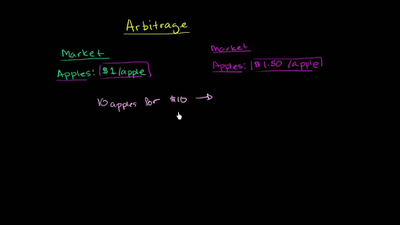 Arbitrage
Market
Apples: $1/apple
Market
Apples: $1.50/apple
10 apples for $10 →